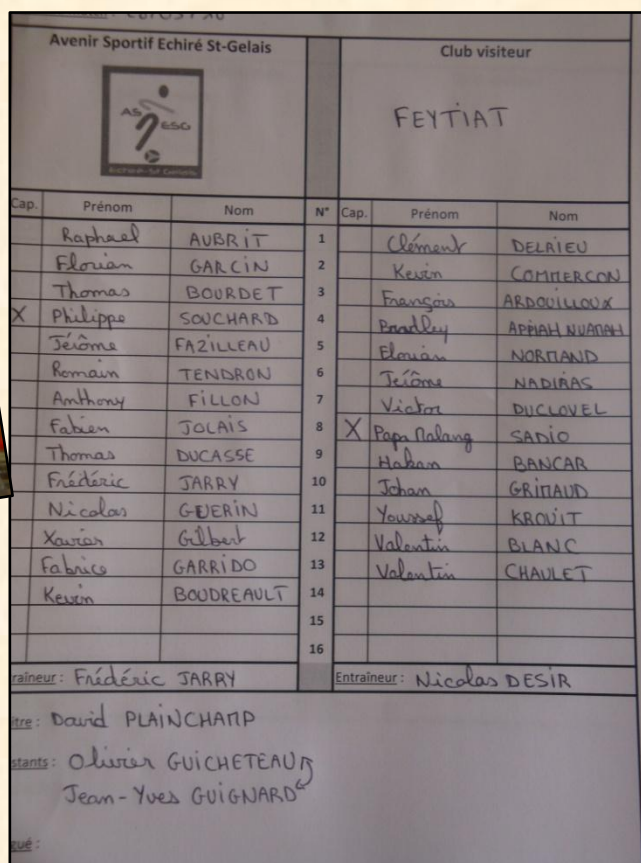 Avenir Sportif Echiré St-Gelais Club visiteur
AS ESG
Echiré-St Gelais
FEYTIAT
Cap. Prénom Nom N° Cap. Prénom Nom
Raphael AUBRIT 1 Clément DELRIEU
Florian GARCIN 2 Kevin COMMERCON
Thomas BOURDET 3 François ARDOUILLOUX
X Philippe SOUCHARD 4 Bradley APPIAH NUAMAH
Jérôme FAZILLEAU 5 Florian NORMAND
Romain TENDRON 6 Jérôme NADIRAS
Anthony FILLON 7 Victor DUCLOVEL
Fabien JOLAIS 8 X Papa Malang SADIO
Thomas DUCASSE 9 Hakan BANCAR
Frédéric JARRY 10 Johan GRIMAUD
Nicolas GUERIN 11 Youssef KROUIT
Xavier Gilbert 12 Valentin BLANC
Fabrice GARRIDO 13 Valentin CHAULET
Kevin BOUDREAULT 14
15
16
raîneur : Frédéric JARRY Entraîneur : Nicolas DESIR
itre : David PLAINCHAMP
stants : Olivier GUICHETEAU
Jean-Yves GUIGNARD
gué :